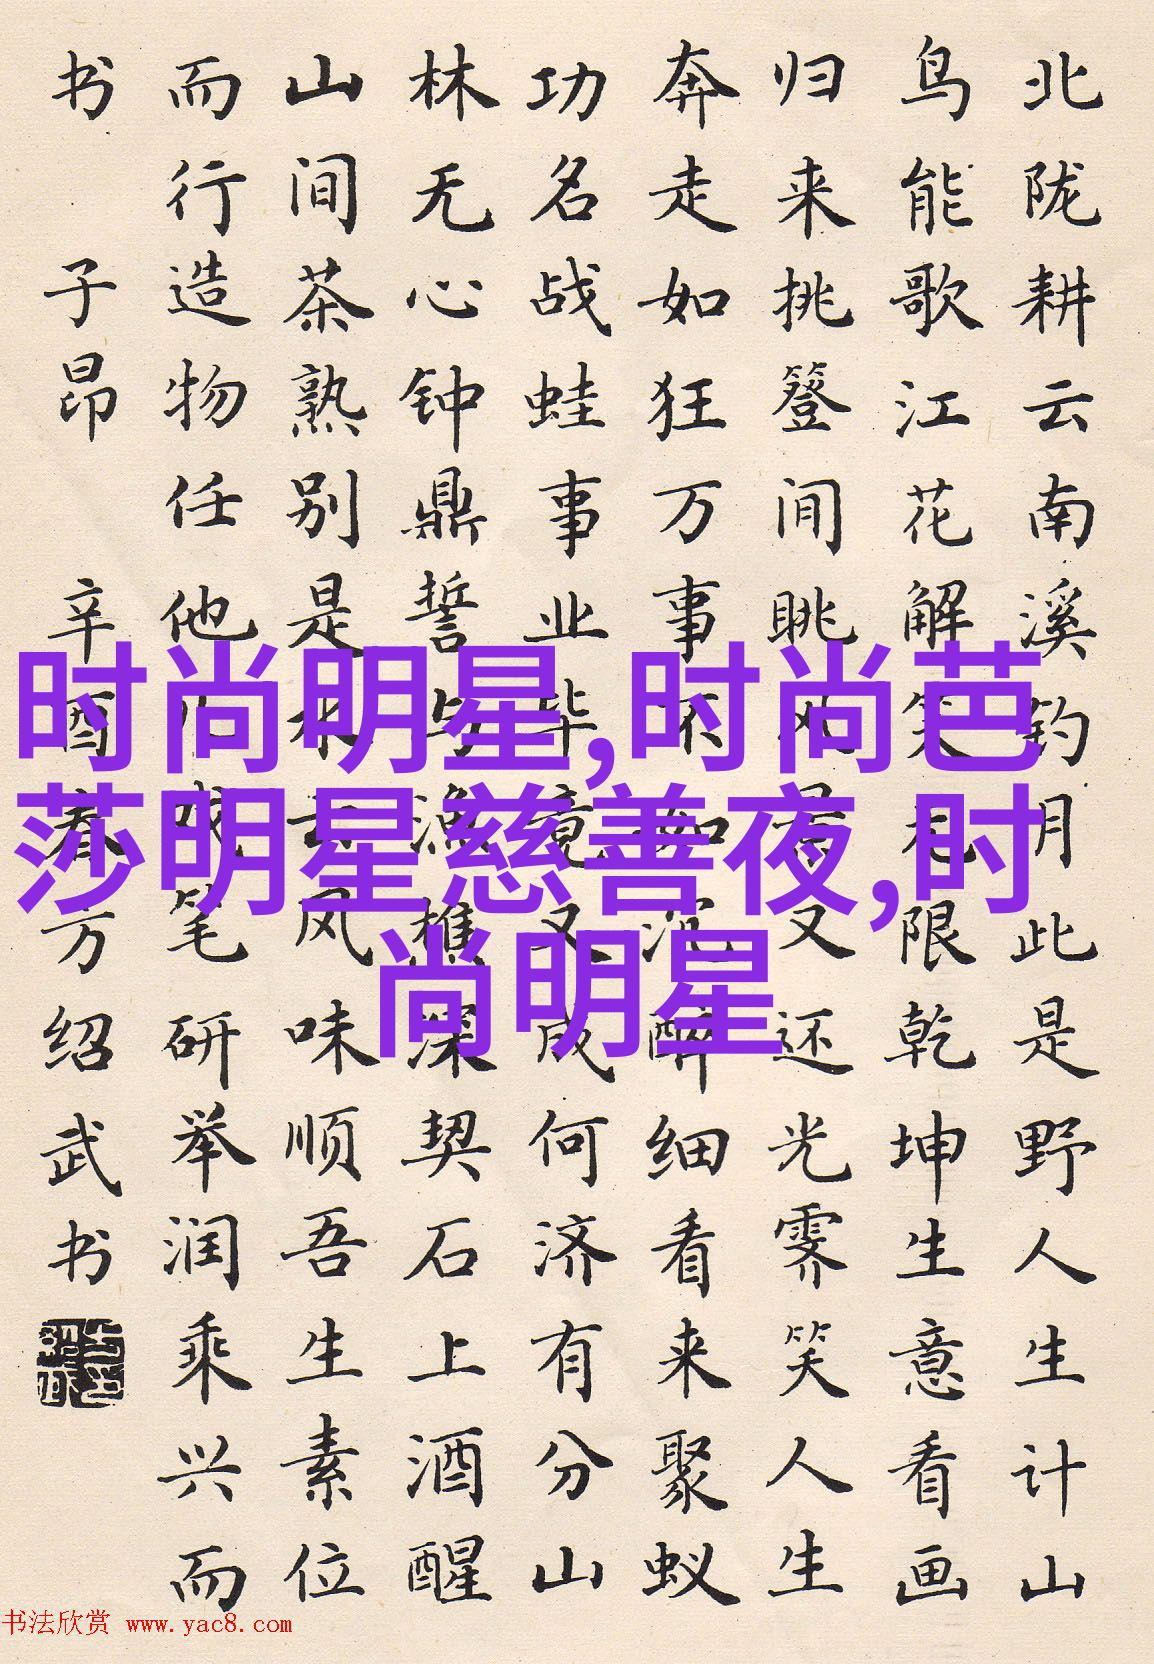 北陇耕云南溪钓月此是野人生计山
鸟能歌江花解笑无限乾坤生意看画
归来挑簦间眺又还光霁笑人生
奔走如狂万事不如沉醉细看来聚蚁
功名战蛙事业毕竟又成何济有分山
林无心钟鼎誓与渔樵深契石上酒醒
山间茶熟别是水云风味顺吾生素位
而行造物任他戏笔研举润乘兴而
书 子昂 辛酉春方绍武书
时尚明星,时尚芭
莎明星慈善夜,时
尚明星
书法欣赏 www.yac8.com